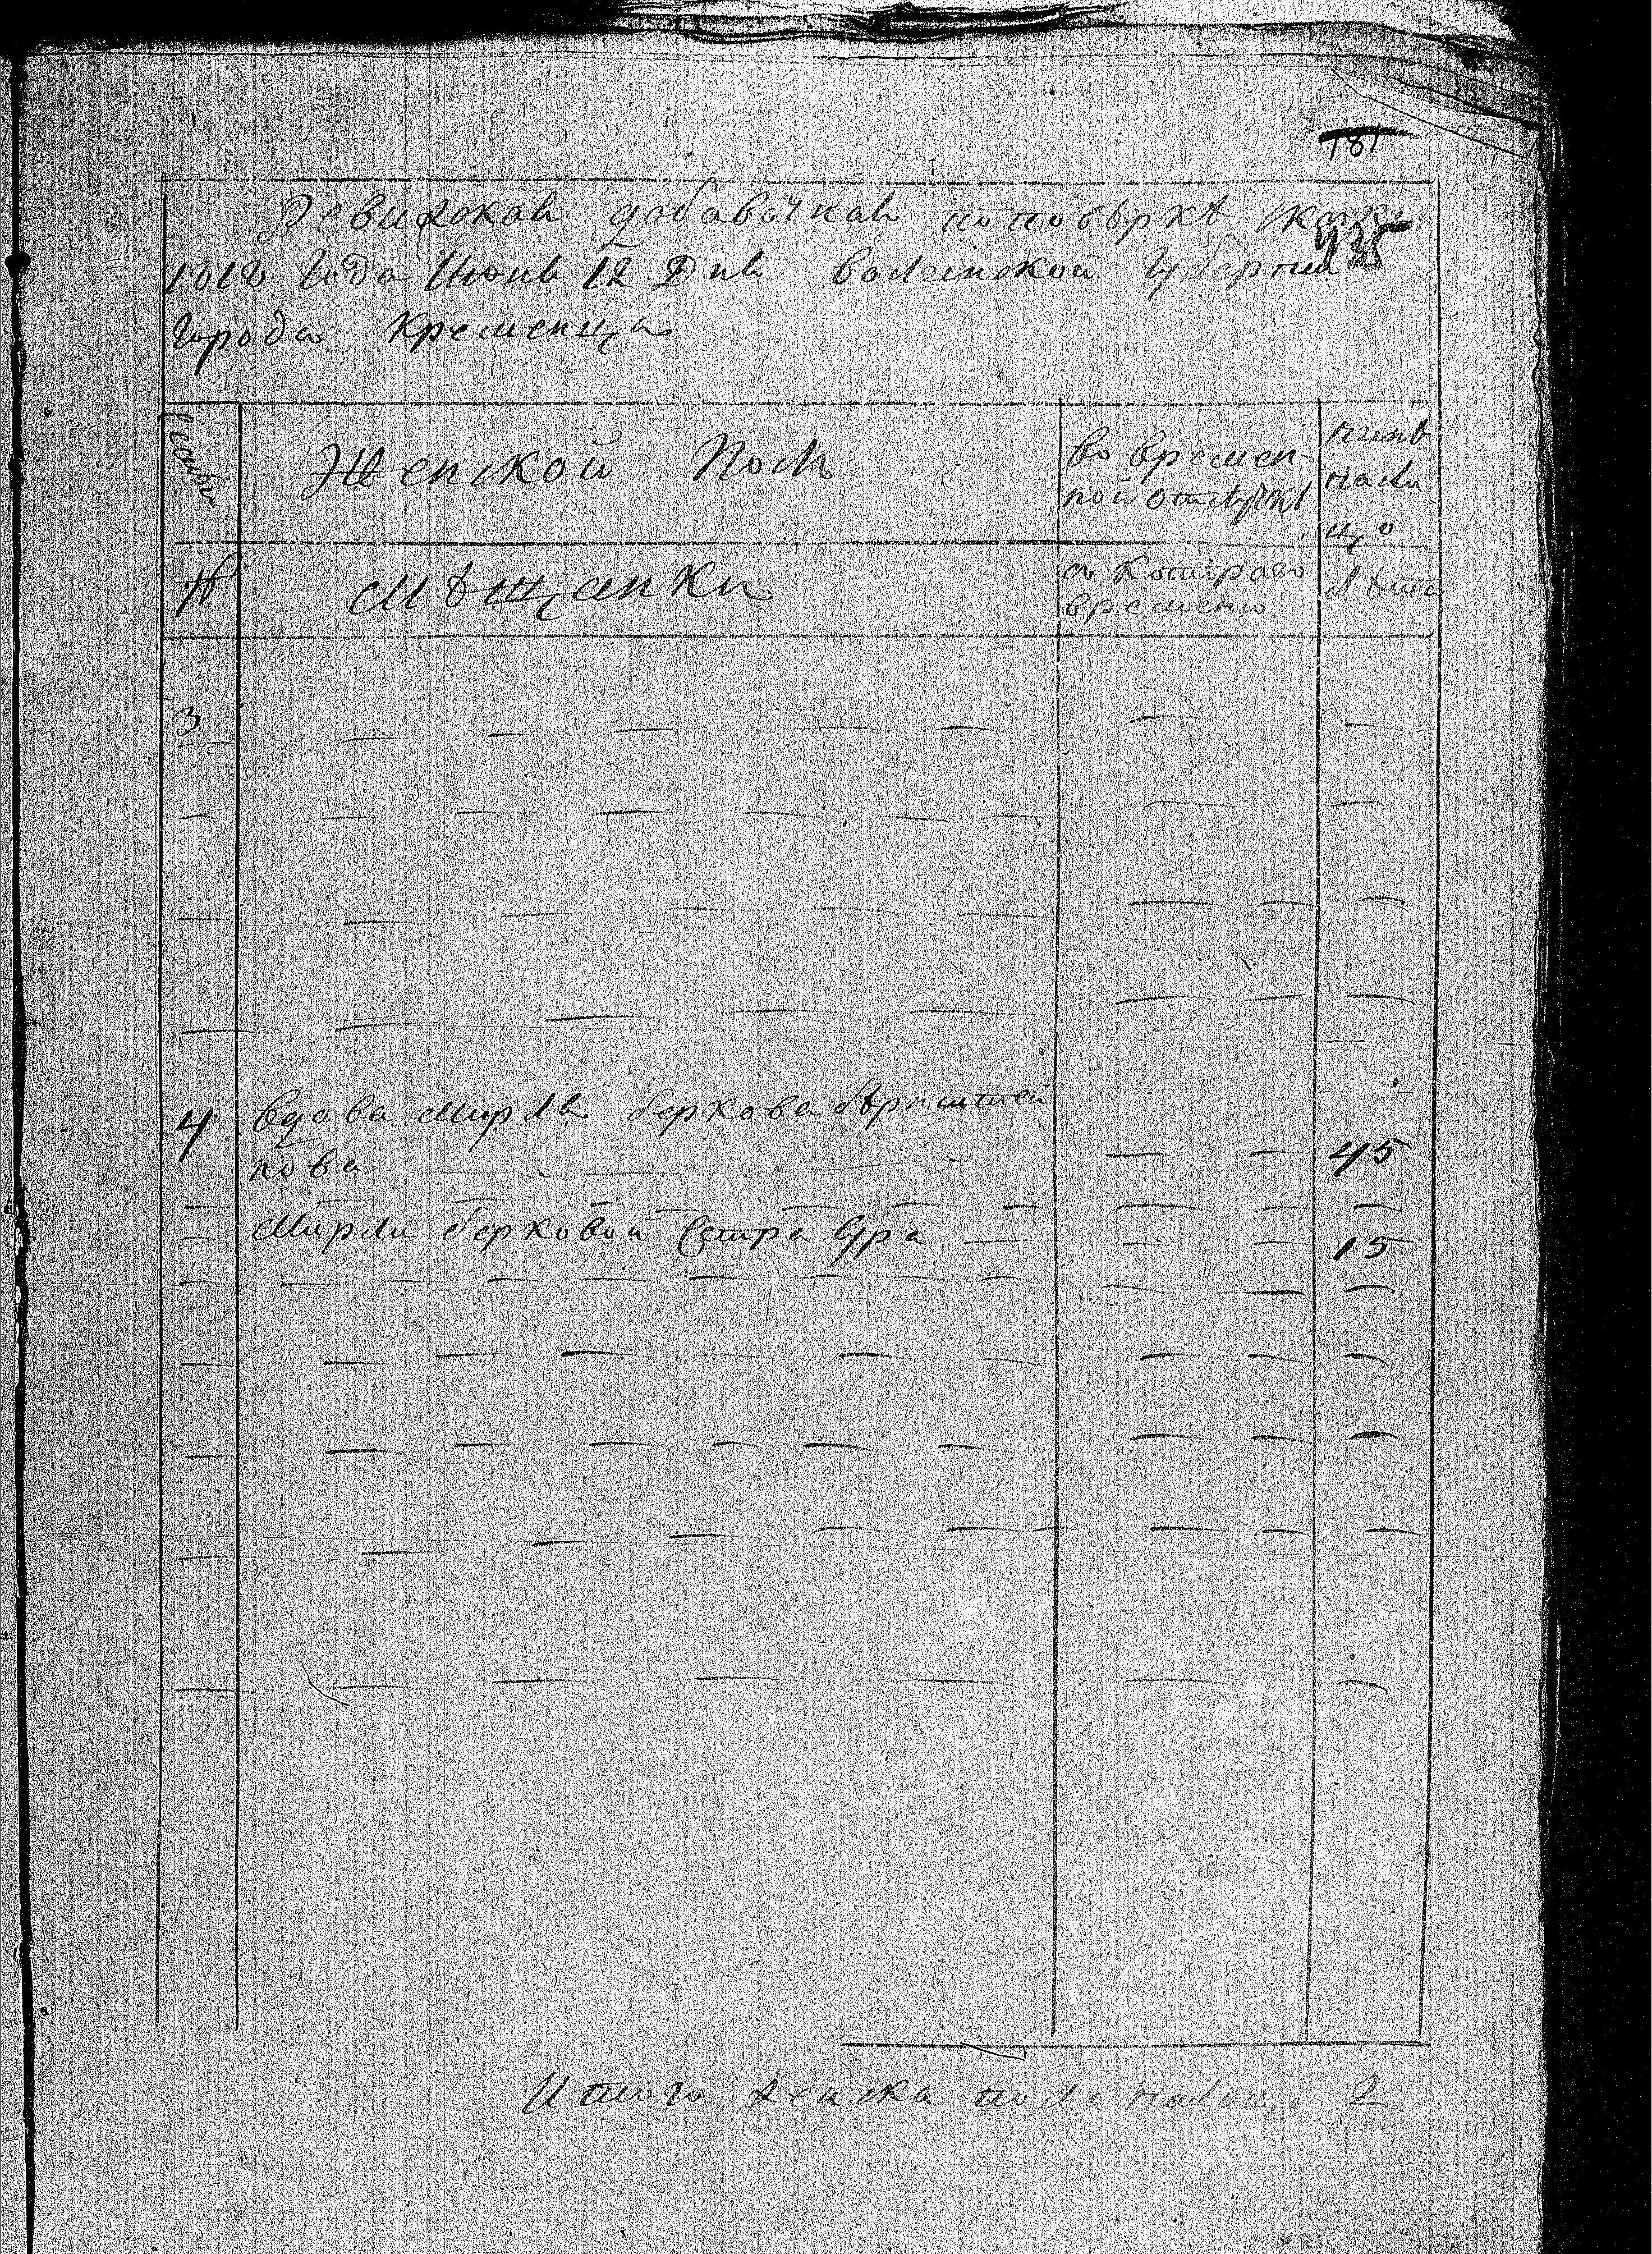 181
Ревизская добавочная по повѣркѣ
935
1818 года Июня 12 Дня волынской губернии
города Кременца
Женской Полъ
во времен-
ной отлучкѣ
нынѣ
на ли
цо
№
мѣщанки
съ котораго
времени
Лѣта
3
4
вдова Мирля беркова бѣрнштей
нова
45
Мирли берковой сестра Сура
15
Итого женска пола налицо 2